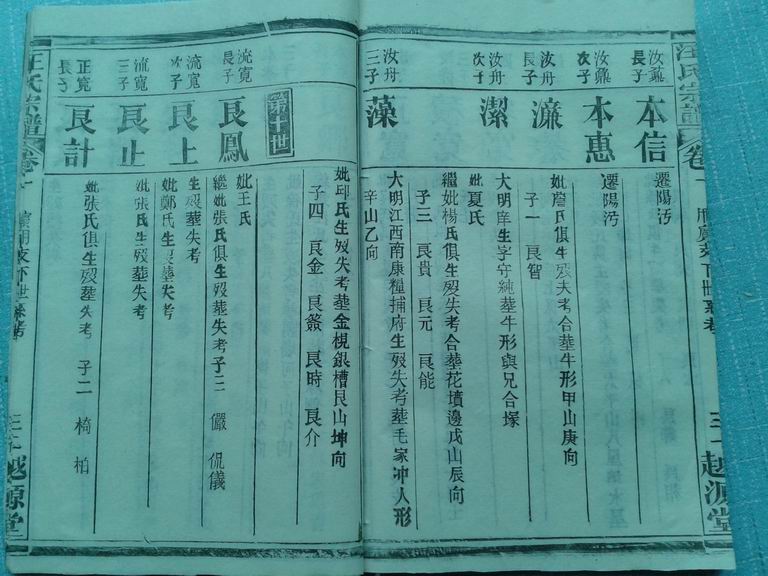 汪氏宗譜
卷一
越源堂
汝鼐
長子
本信
遷陽沔
汝鼐
次子
本惠
遷陽沔
汝舟
長子
濂
妣詹氏俱生歿失考合塟牛形甲山庚向
子一 艮智
汝舟
次子
潔
大明庠生字守純塟牛形與兄合塚
妣夏氏
繼妣楊氏俱生歿失考合塟花墳邊戌山辰向
子三 艮貴 艮元 艮能
汝舟
三子
藻
大明江西南康糧捕府生歿失考塟毛家冲人形
辛山乙向
妣邱氏生歿失考塟金梘銀槽艮山坤向
子四 艮金 艮簽 艮時 艮介
第十世
流寬
長子
艮鳳
妣王氏
繼妣張氏俱生歿塟失考子三 儼 侃 儀
流寬
次子
艮上
生歿塟失考
妣鄭氏生歿塟失考
流寬
三子
艮止
妣張氏生歿塟失考
正寬
長子
艮計
妣張氏俱生歿塟失考 子二 椅 柏
汪氏宗譜
卷一
越源堂